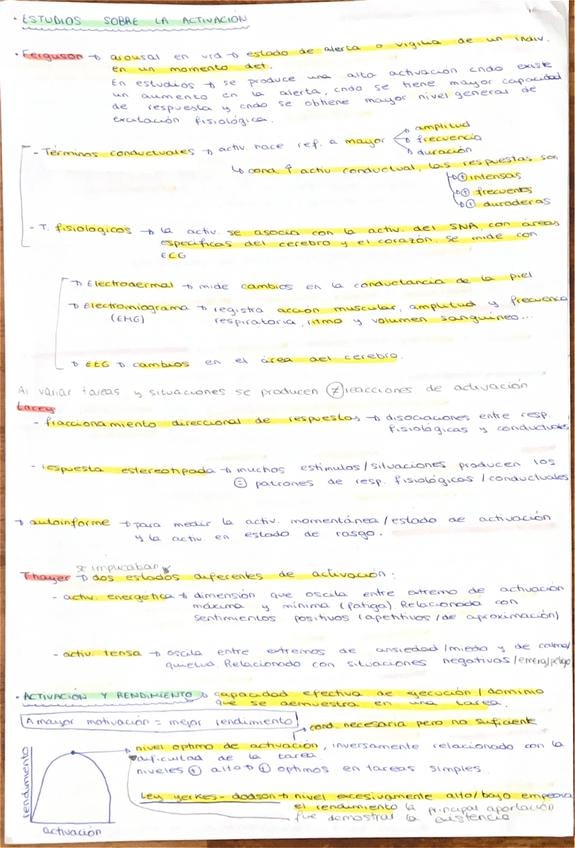 · ESTUDIOS SOBRE LA ACTIVACIÓN
· Ferguson → arousal en vrd → estado de alerta o vigilia de un indiv.
en un momento det.
En estudios → se produce una alta activación cndo existe
un aumento en la alerta, cndo se tiene mayor capacidad
de respuesta y cndo se obtiene mayor nivel general de
excitación fisiológica.
- Términos conductuales → activ. hace ref. a mayor
amplitud
frecuencia
duración
↳ cond ↑ activ conductual, las respuestas son
⊕ intensas
⊕ frecuentes
⊕ duraderas
- T. fisiológicos → la activ. se asocia con la activ. del SNA, con áreas
específicas del cerebro y el corazón. se mide con
ECG
→ Electrodermal → mide cambios en la conductancia de la piel
→ Electromiograma → registra acción muscular, amplitud y frecuencia
(EMG) respiratoria, ritmo y volumen sanguíneo...
→ EEG → cambios en el área del cerebro.
Al variar tareas y situaciones se producen ≠ reacciones de activación
Lacey
- fraccionamiento direccional de respuestas → disociaciones entre resp.
fisiológicas y conductuales
- respuesta estereotipada → muchos estímulos/situaciones producen los
= patrones de resp. fisiológicas/conductuales
→ autoinforme → para medir la activ. momentánea/estado de activación
y la activ. en estado de rasgo.
se implicaban
Thayer → dos estados diferentes de activación:
- activ. energética → dimensión que oscila entre extremo de activación
máxima y mínima (fatiga) Relacionada con
sentimientos positivos (apetitivos/de aproximación)
- activ. tensa → oscila entre extremos de ansiedad/miedo y de calma/
quietud Relacionado con situaciones negativas/emerg/peligro
· ACTIVACIÓN Y RENDIMIENTO → capacidad efectiva de ejecución/dominio
que se demuestra en una tarea.
A mayor motivación = mejor rendimiento
→ cond. necesaria pero no suficiente
nivel optimo de activación, inversamente relacionado con la
dificultad de la tarea
niveles ⊕ alto → ⊕ optimos en tareas simples.
Ley yerkes-dodson → nivel excesivamente alto/bajo empeora
el rendimiento la principal aportación
fue demostrar la existencia
rendimiento
activación